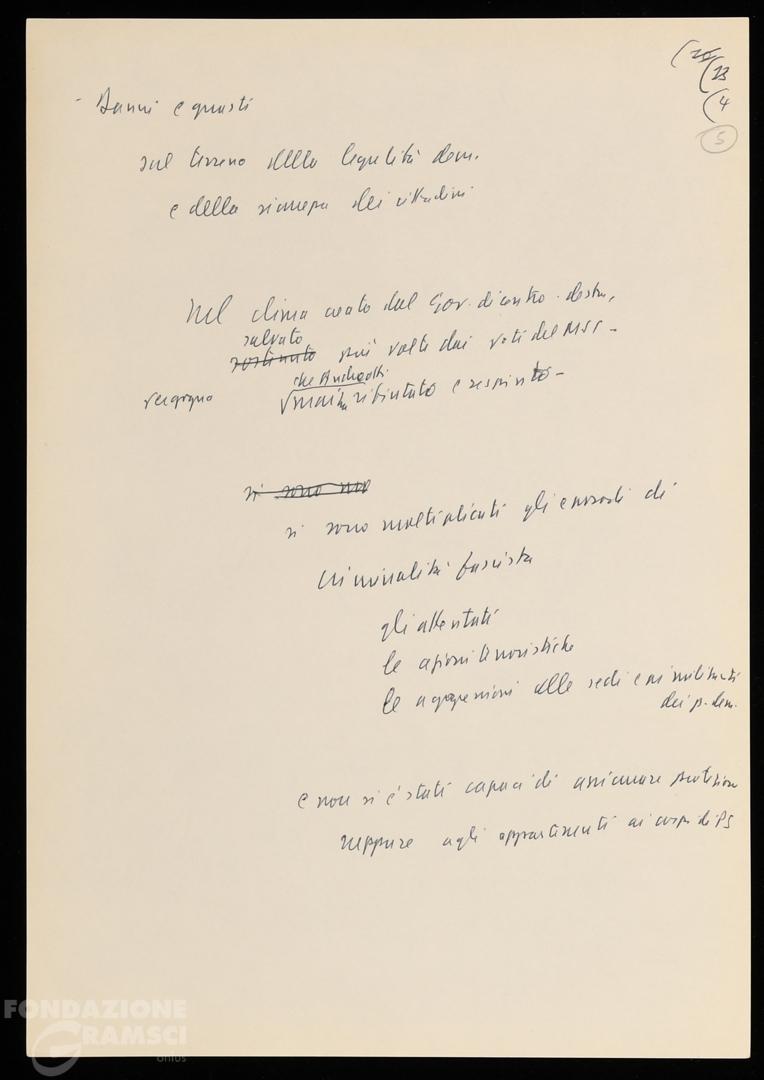 (20
(23
(4
5
- Danni e guasti
sul terreno della legalità dem.
e della sicurezza dei cittadini
Nel clima creato dal Gov. di centro-destra,
salvato
sostenuto più volte dai voti del MSI -
che Andreotti
vergogna mai ha rifiutato e respinto -
si sono mol
si sono moltiplicati gli episodi di
criminalità fascista
gli attentati
le azioni terroristiche
le aggressioni alle sedi e ai militanti
dei p. dem.
e non si è stati capaci di assicurare protezione
neppure agli appartenenti ai corpi di PS
FONDAZIONE
GRAMSCI
onlus